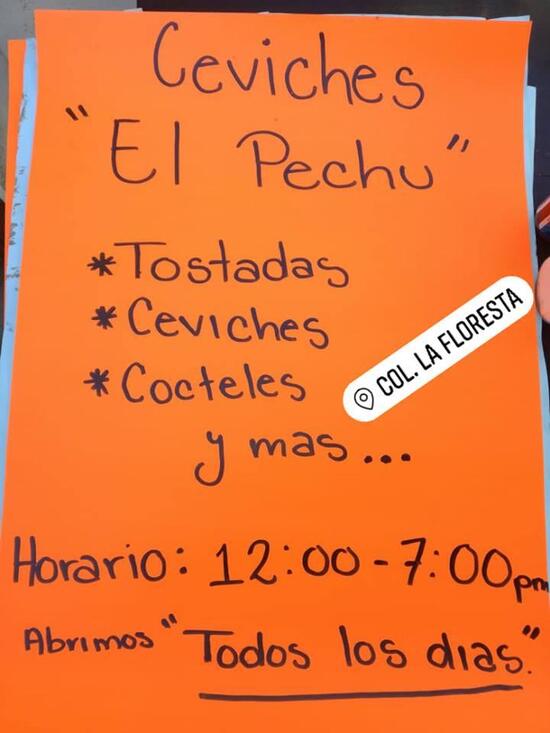 Ceviches
"El Pechu"
*Tostadas
*Ceviches
*Cocteles
y mas...
COL. LA FLORESTA
Horario: 12:00-7:00pm
Abrimos "Todos los dias."